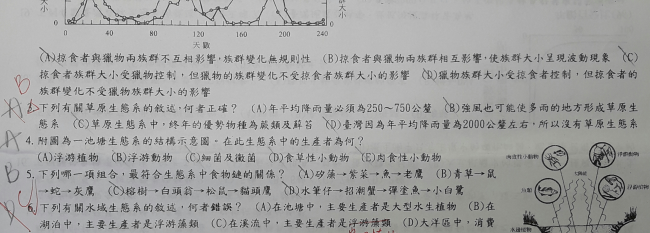 0 40 80 120 160 200 240
天數
(A)掠食者與獵物兩族群不互相影響,族群變化無規則性 (B)掠食者與獵物兩族群相互影響,使族群大小呈現波動現象 (C)
掠食者族群大小受獵物控制,但獵物的族群變化不受掠食者族群大小的影響 (D)獵物族群大小受掠食者控制,但掠食者的
族群變化不受獵物族群大小的影響
B
下列有關草原生態系的敘述,何者正確? (A)年平均降雨量必須為250~750公釐 (B)強風也可能使多雨的地方形成草原生
態系 (C)草原生態系中,終年的優勢物種為蕨類及蘚苔 (D)臺灣因為年平均降雨量為2000公釐左右,所以沒有草原生態系
A 4. 附圖為一池塘生態系的結構示意圖。在此生態系中的生產者為何?
(A)浮游植物 (B)浮游動物 (C)細菌及黴菌 (D)食草性小動物 (E)肉食性小動物
B 5. 下列哪一項組合,最符合生態系中食物鏈的關係? (A)矽藻→紫菜→魚→老鷹 (B)青草→鼠
→蛇→灰鷹 (C)榕樹→白頭翁→松鼠→貓頭鷹 (D)水筆仔→招潮蟹→彈塗魚→小白鷺
6. 下列有關水域生態系的敘述,何者錯誤? (A)在池塘中,主要生產者是大型水生植物 (B)在
湖泊中,主要生產者是浮游藻類 (C)在溪流中,主要生產者是浮游藻類 (D)大洋區中,消費